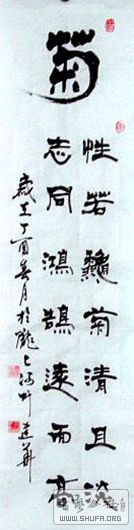 菊
性若菊清且淡
志同鴻鵠遠而高
歲丁酉月於
WWW.SHUFA.ORG